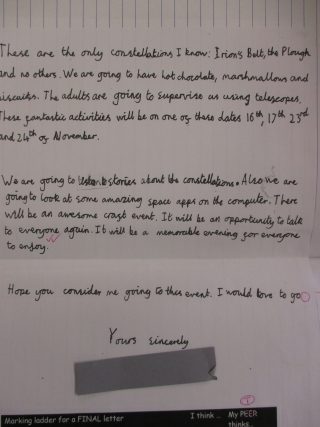 These are the only constellations I know: Irion's Belt, the Plough
and no others. We are going to have hot chocolate, marshmallows and
biscuits. The adults are going to supervise us using telescopes.
These fantastic activities will be on one of these dates 16th, 17th 23rd
and 24th of November.
We are going to listen to stories about the constellations. Also we are
going to look at some amazing space apps on the computer. There
will be an awesome craft event. It will be an opportunity to talk
to everyone again. It will be a memorable evening for everyone
to enjoy.
Hope you consider me going to this event. I would love to go
Yours sincerely
Marking ladder for a FINAL letter I think... My PEER
thinks...